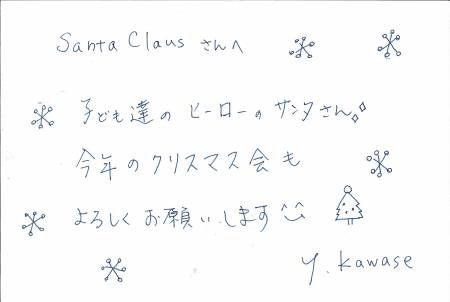 Santa Claus さんへ
子ども達の ヒーローの サンタさん
今年の クリスマス会も
よろしく お願いします
Y. Kawase